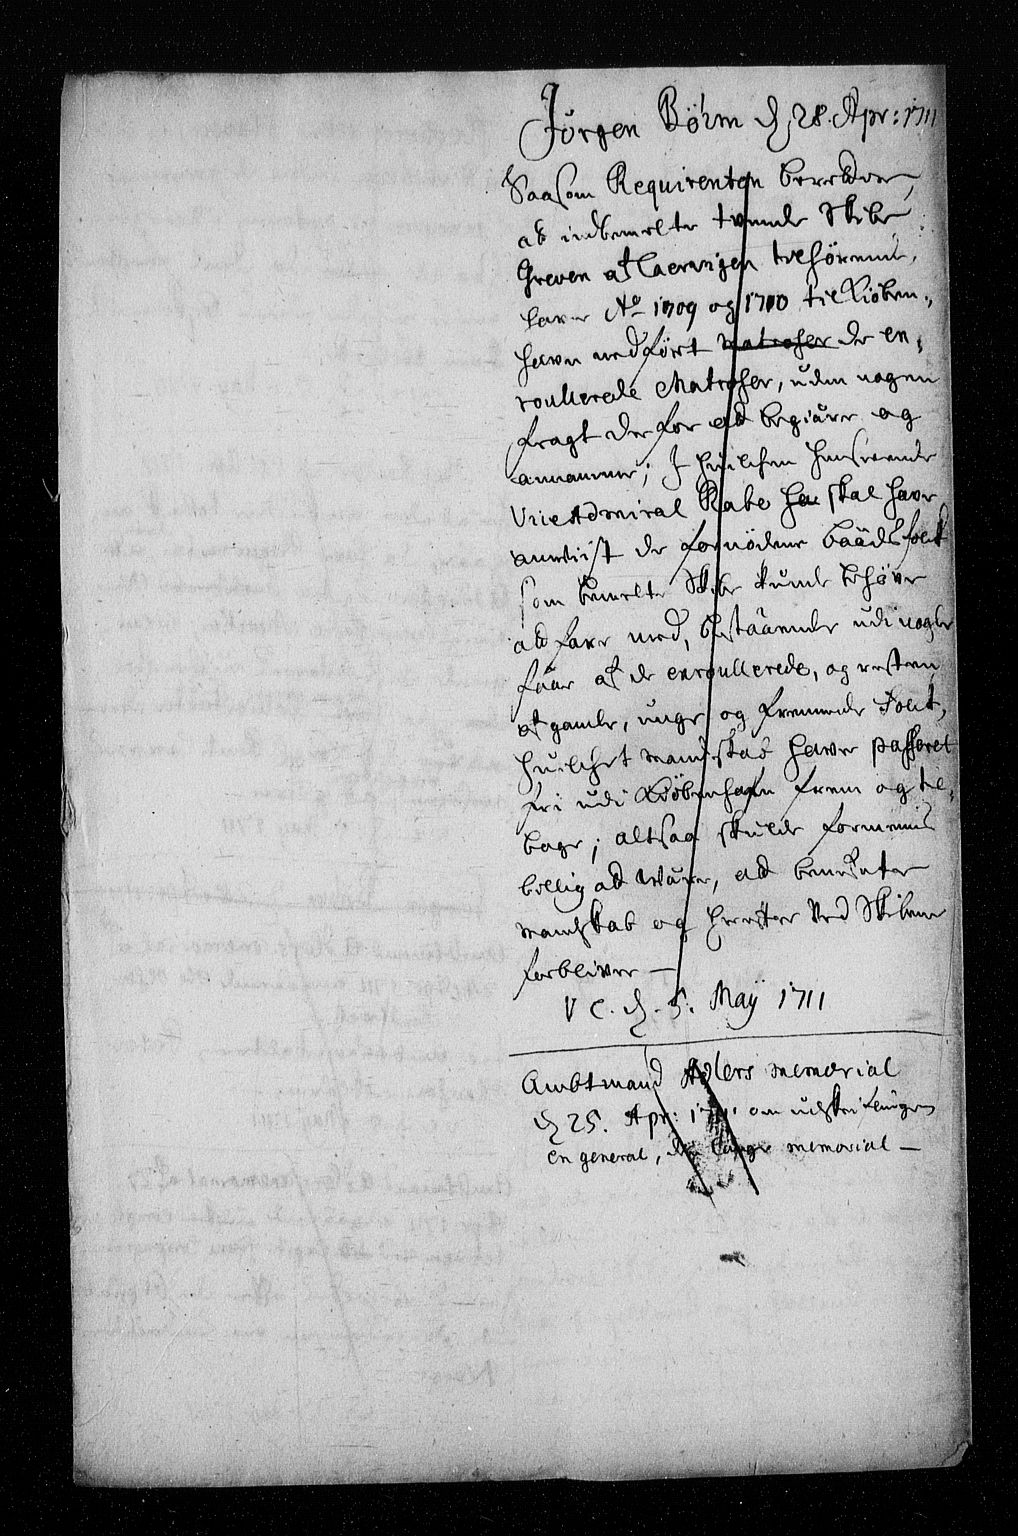 Jörgen Böhm d. 28. Apr: 1711
Saasom Requirenten beretter,
at indbemelte tvende Skibe
Greven af Laervigen tilhörende,
haver Ao 1709 og 1710 til Kiöben-
havn nedfört Matroser de en-
roullerede Matroser, uden nogen
fragt derfor at begiäre og
annamme; I huilchen henseende
ViceAdmiral Rabe ha skal have
anviist de fornödene baadsfolck
som bemelte Skibe kunde behöve
at fare med, bestaaende udi nogle
faae af de enroullerede, og resten
af gamle, unge og fremmede Folck,
huilchet mandskab haver passeret
fri udi Kiöbenhafn frem og til-
bage; altsaa skulde formeenis
billig at wäre, at benefnte
mandskab og herefter ved Skibene
forbliver —
V C. d. 5. Maÿ 1711
Ambtmand Adlers memorial
d 25. Apr: 1711. om udskrifningen
en general, memorial —